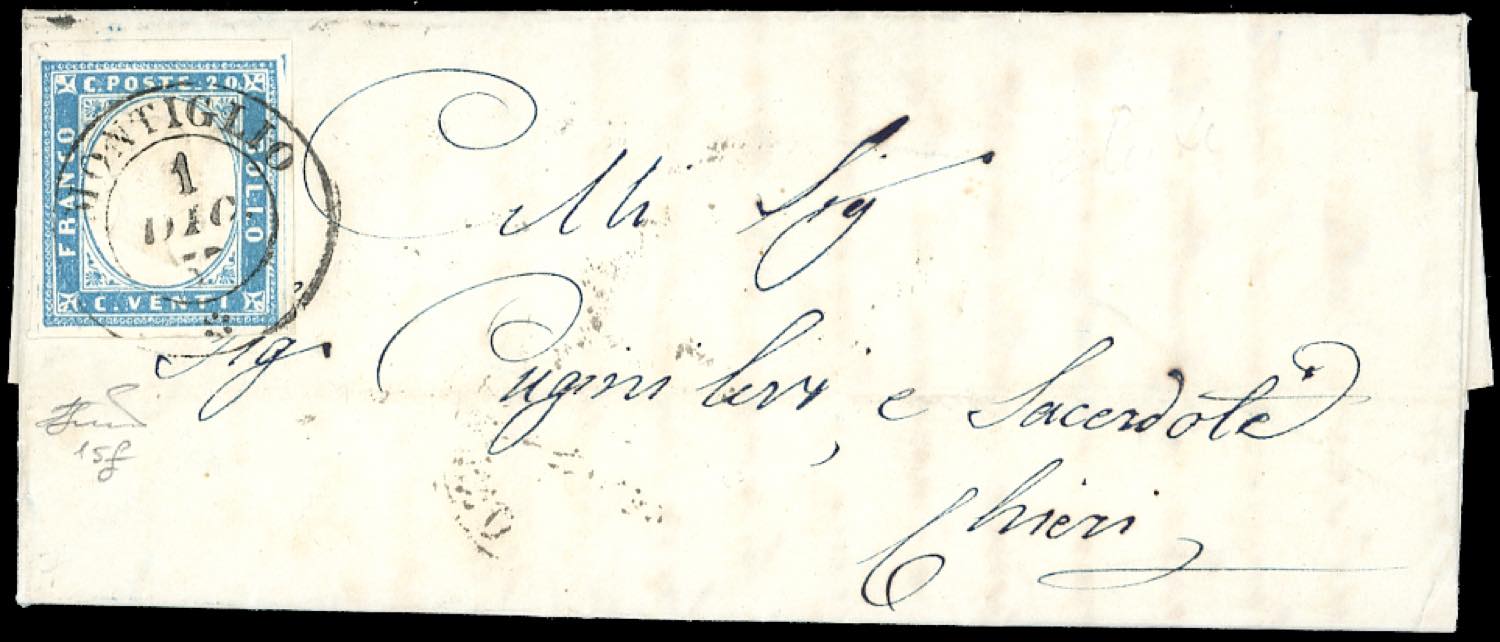 C. POSTE. 20
FRANCO
BOLLO
C. VENTI
MONTIGLIO
1
DIC
57
Alli Sig
Sig Pugini Levi, e Sacerdote
Chieri
15f